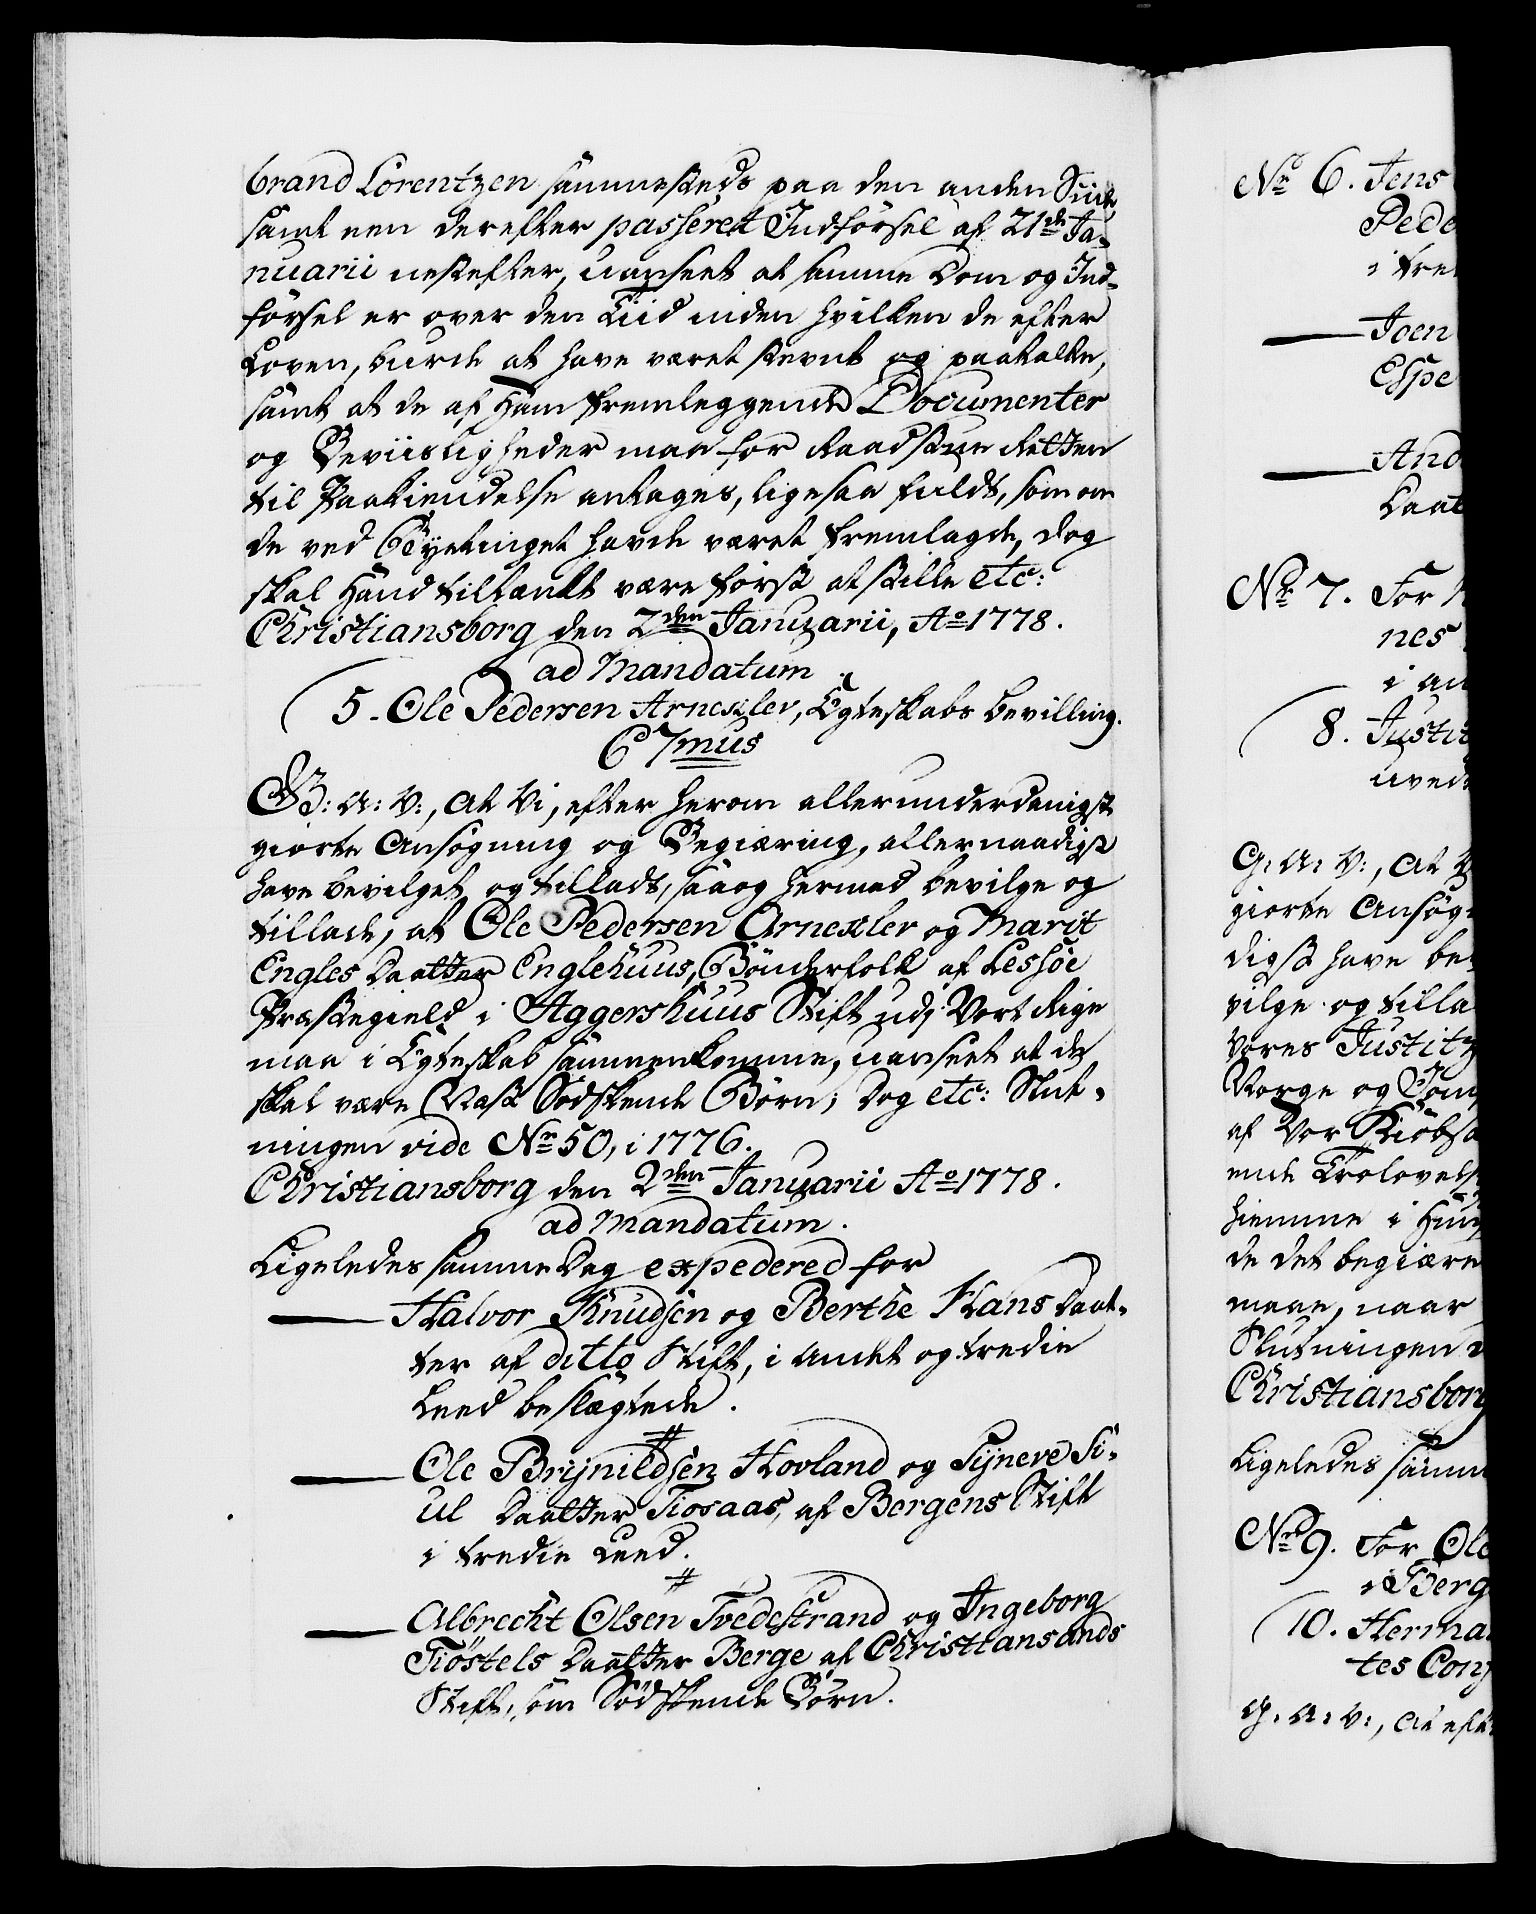 brand Lorentzen sammesteds paa den anden Siide
samt een derefter passeret Indførsel af 21de Ja-
nuarii nestefter, uanseet at samme Dom og Ind-
førsel er over den Tiid inden hvilken de efter
Loven, burde at have været stevnt og paatalte,
samt at de af Ham fremleggende Documenter
og Beviisligheder maa for Raadstue Retten
til Paakiendelse antages, ligesaa fuldt, som om
de ved Bÿetinget havde været fremlagde, dog
skal Hand tiltænkt være først at stille etc:
Christiansborg den 2den Januarii, Ao 1778.
ad Mandatum
5. Ole Pedersen Arnexler, Egteskabs Bevilling.
C 7mus
G: A: V:, At Vi, efter herom allerunderdanigst
giorte Ansøgning og Begiæring, allernaadigst
have bevilget og tilladt, saa og hermed bevilge og
tillade, at Ole Pedersen Arnexler og Marit
Engles Daatter Englehuus, Bønderfolk af Lessøe
Præstegield i Aggershuus Stift udi Vort Rige
maa i Egteskab sammenkomme, uanseet at de
skal være Næst Sødskende Børn; Dog etc: Slut-
ningen vide No 50, i 1776.
Christiansborg den 2den Januarii Ao 1778.
ad Mandatum.
Ligeledes samme Dag expedered for
— Halvor Knudsen og Berthe Hans Daat-
ter af ditto Stift, i andet og tredie
Leed beslægtede.
— Ole Brÿnildsen Hovland og Sÿneve Si-
ul Daatter Tiosaas, af Bergens Stift
i tredie Leed.
— Albrecht Olsen Tvedestrand og Ingeborg
Tiøstels Daatter Berge af Christiansands
Stift, som Sødskende Børn.
No 6. Jens
Pede
i tre
— Joen
Espe
— And
Daat
No 7. For
nes
i an
8. Justit
uved
G: A: V:, At V
giorte Ansøg
digst have be
vilge og tilla
Vores Justitz
Norge og
af Vor Kiøbs
ende Trolovels
hiemme i Huu
de det begiære
maae, naar
Slutningen
Christiansborg
Ligeledes samm
No 9. For Ole
i Berg
10. Herma
tes Con
G: A: V:, At efte